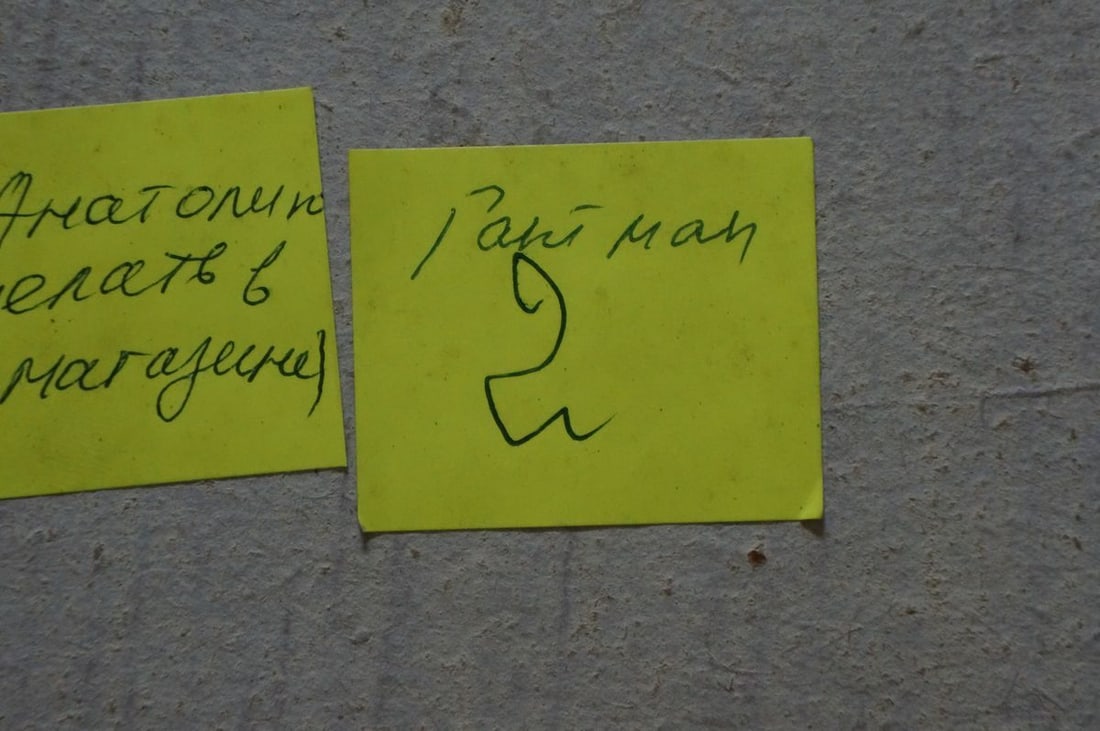 Анатолию
делать в
магазине)
Гантман
2